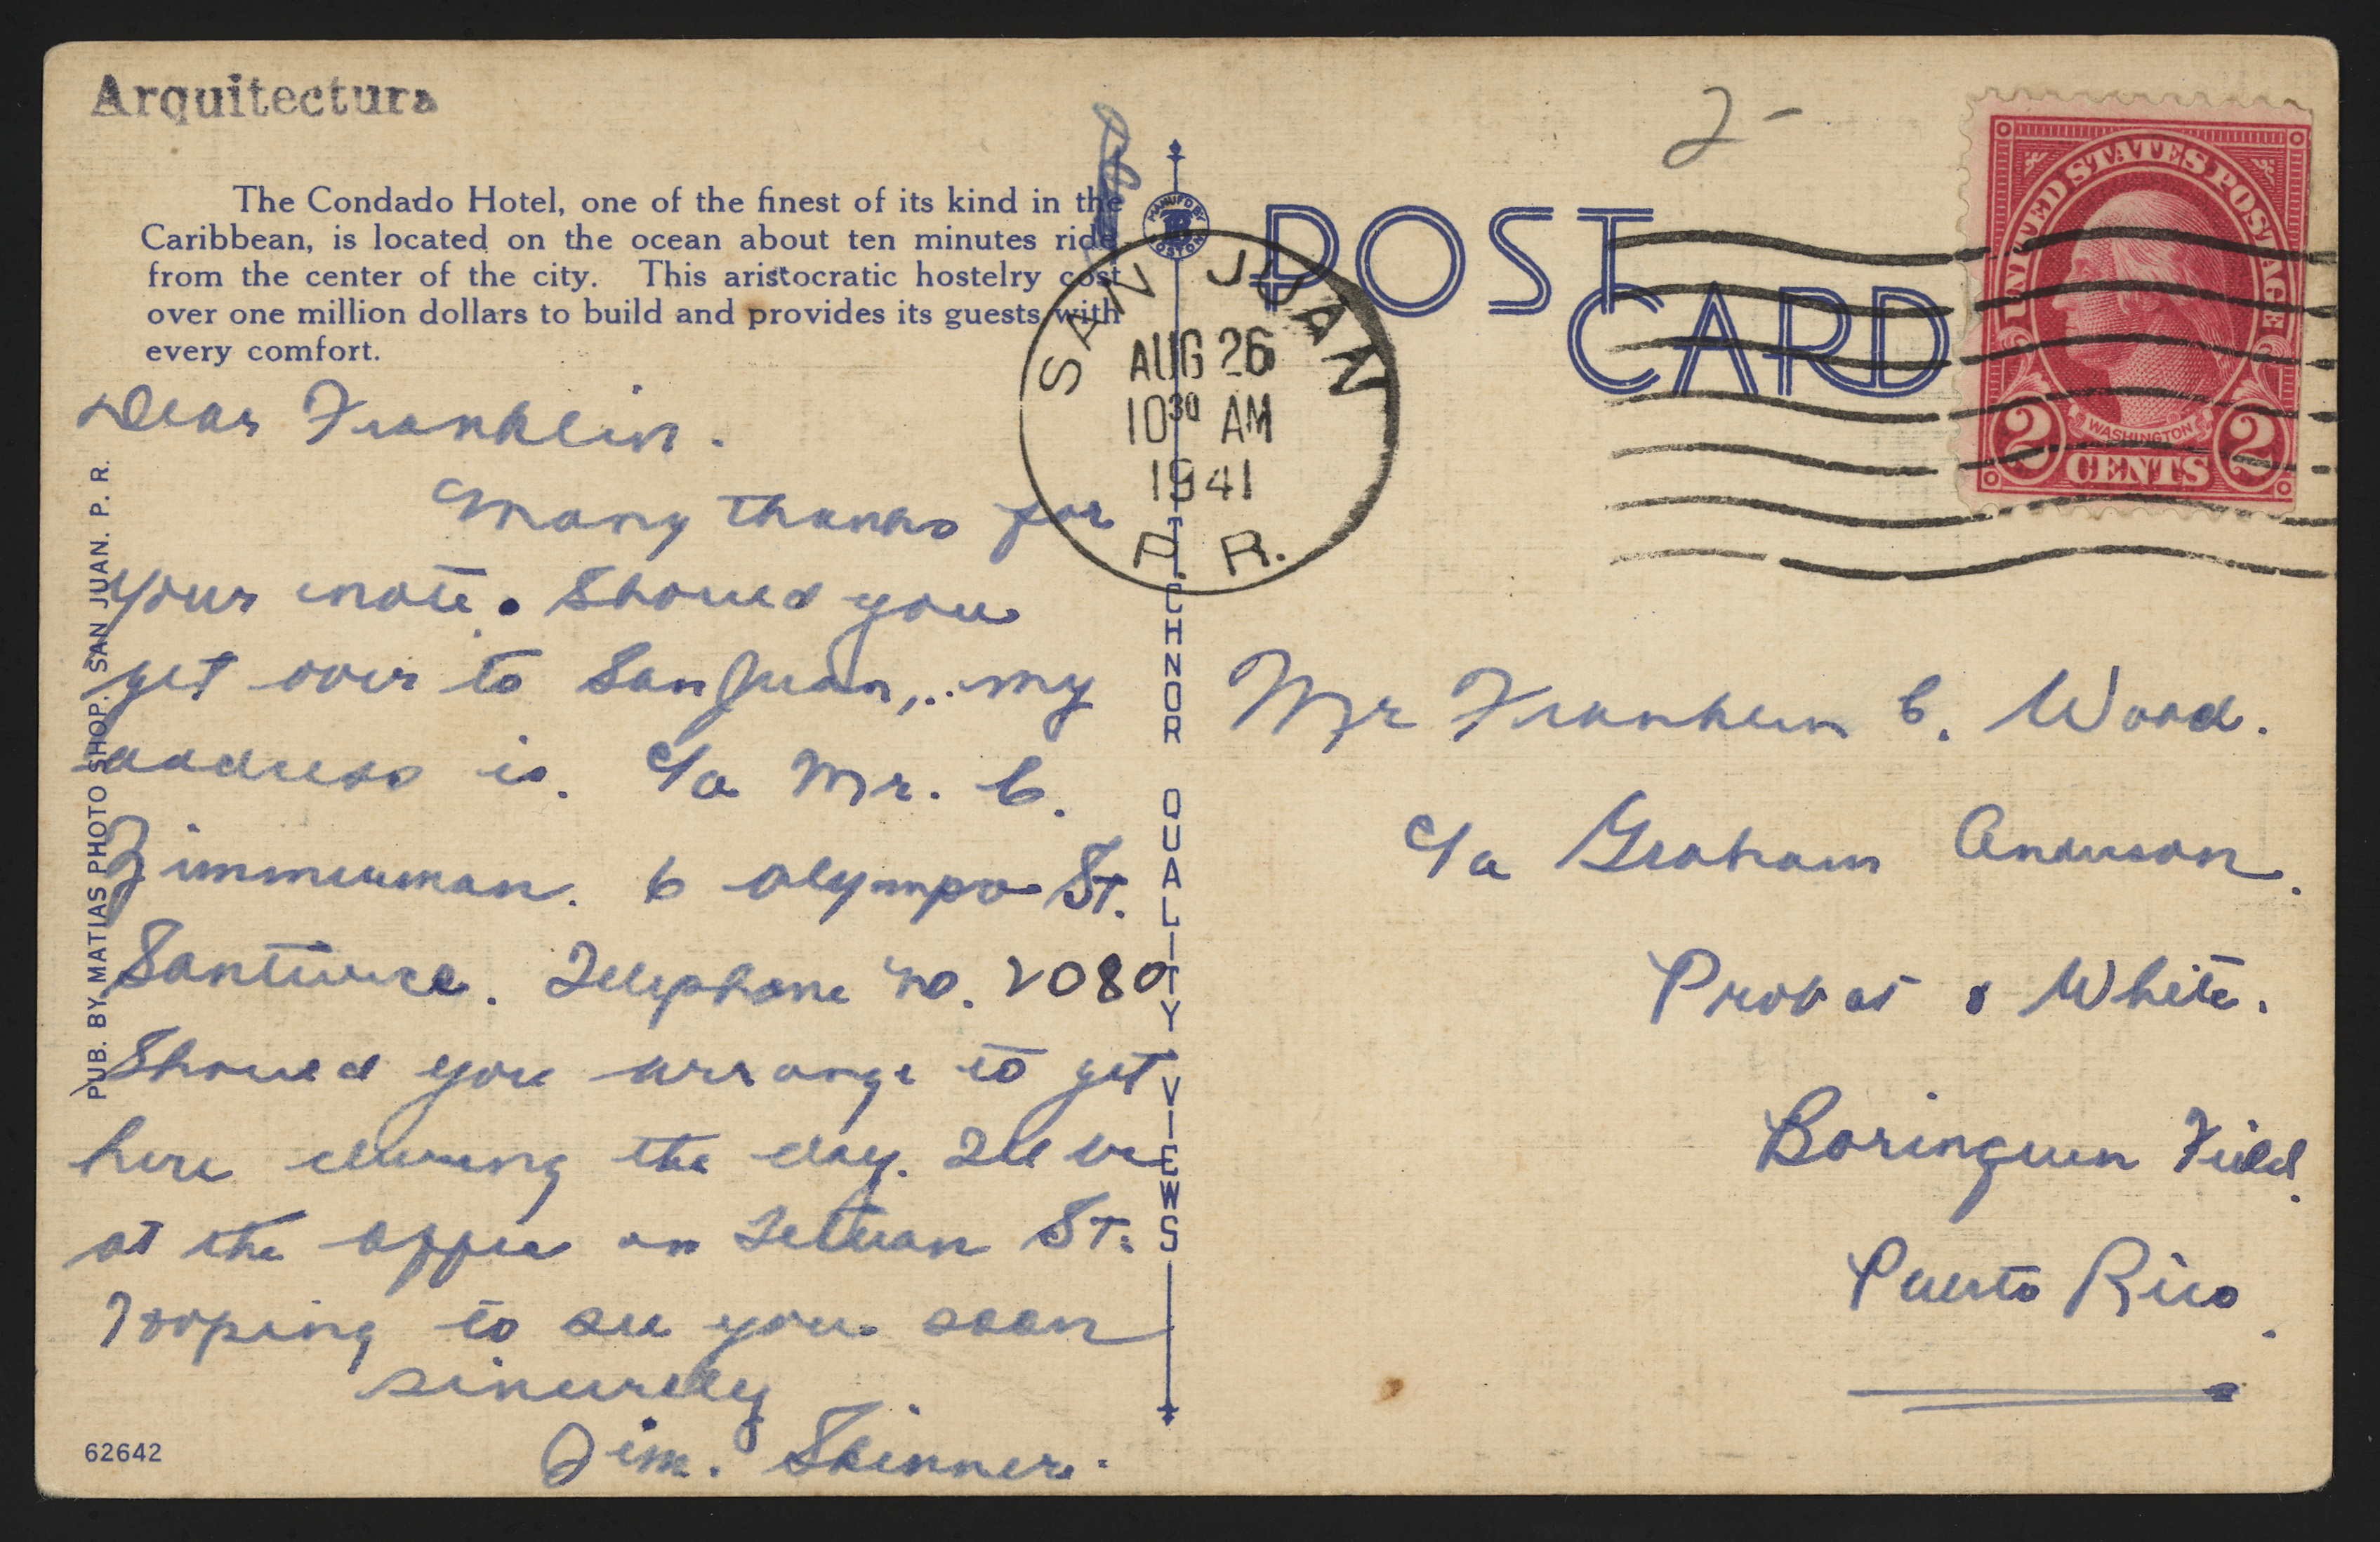 Arquitectura
The Condado Hotel, one of the finest of its kind in the
Caribbean, is located on the ocean about ten minutes ride
from the center of the city. This aristocratic hostelry cost
over one million dollars to build and provides its guests with
every comfort.
Dear Franklin.
Many thanks for
your note. Should you
get over to San Juan, my
address is. c/o Mr. C.
Zimmerman. 6 Olympo St.
Santurce. Telephone No. 2080
Should you arrange to get
here during the day. I'll be
at the office on Tetuan St.
Hoping to see you soon
sincerely
Jim. Skinner.
62642
PUB. BY MATIAS PHOTO SHOP, SAN JUAN, P. R.
MANUF'D BY
BOSTON
TICHNOR QUALITY VIEWS
SAN JUAN
AUG 26
10 30 AM
1941
P. R.
POST
CARD
2-
UNITED STATES POSTAGE
WASHINGTON
2 CENTS 2
Mr Franklin C. Wood.
c/o Graham Anderson.
Probst & White.
Borinquen Field.
Puerto Rico.